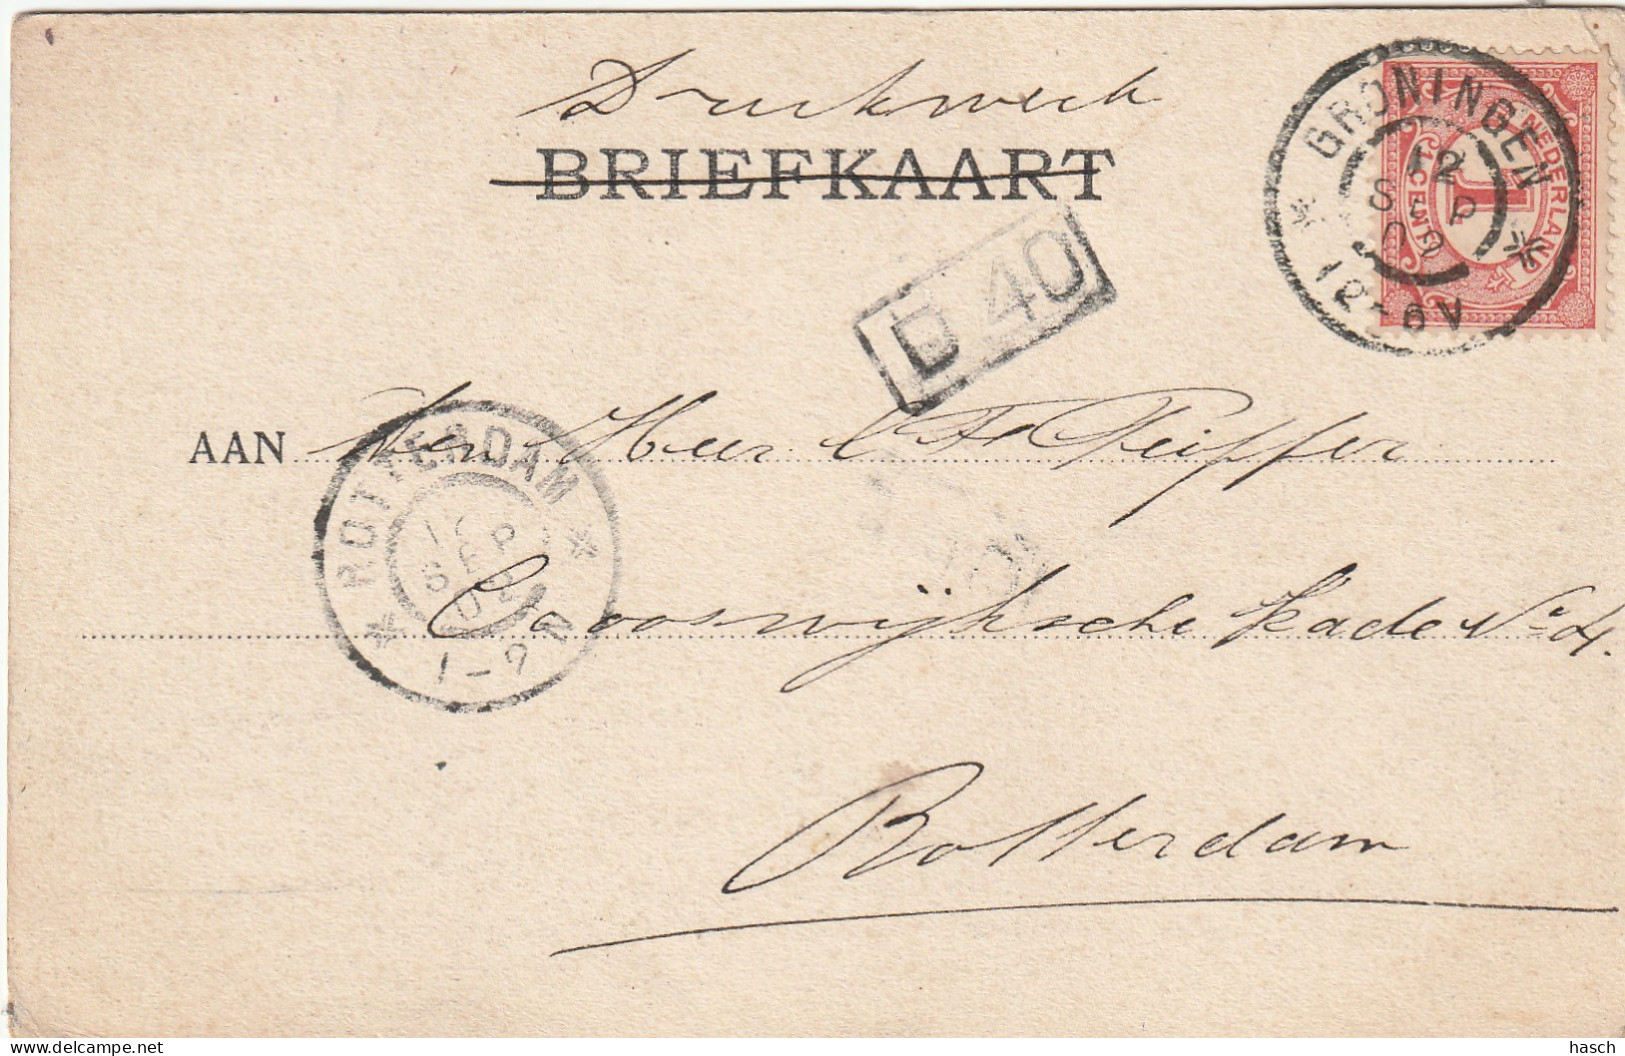 Drukwerk
BRIEFKAART
GRONINGEN
12
SEP
02
12-6V
NEDERLAND
1
1 CENT
D 40
AAN Den Heer Pfeiffer
ROTTERDAM
SEP
02
1-2N
Crooswijksche kade No 4.
Rotterdam
hasch